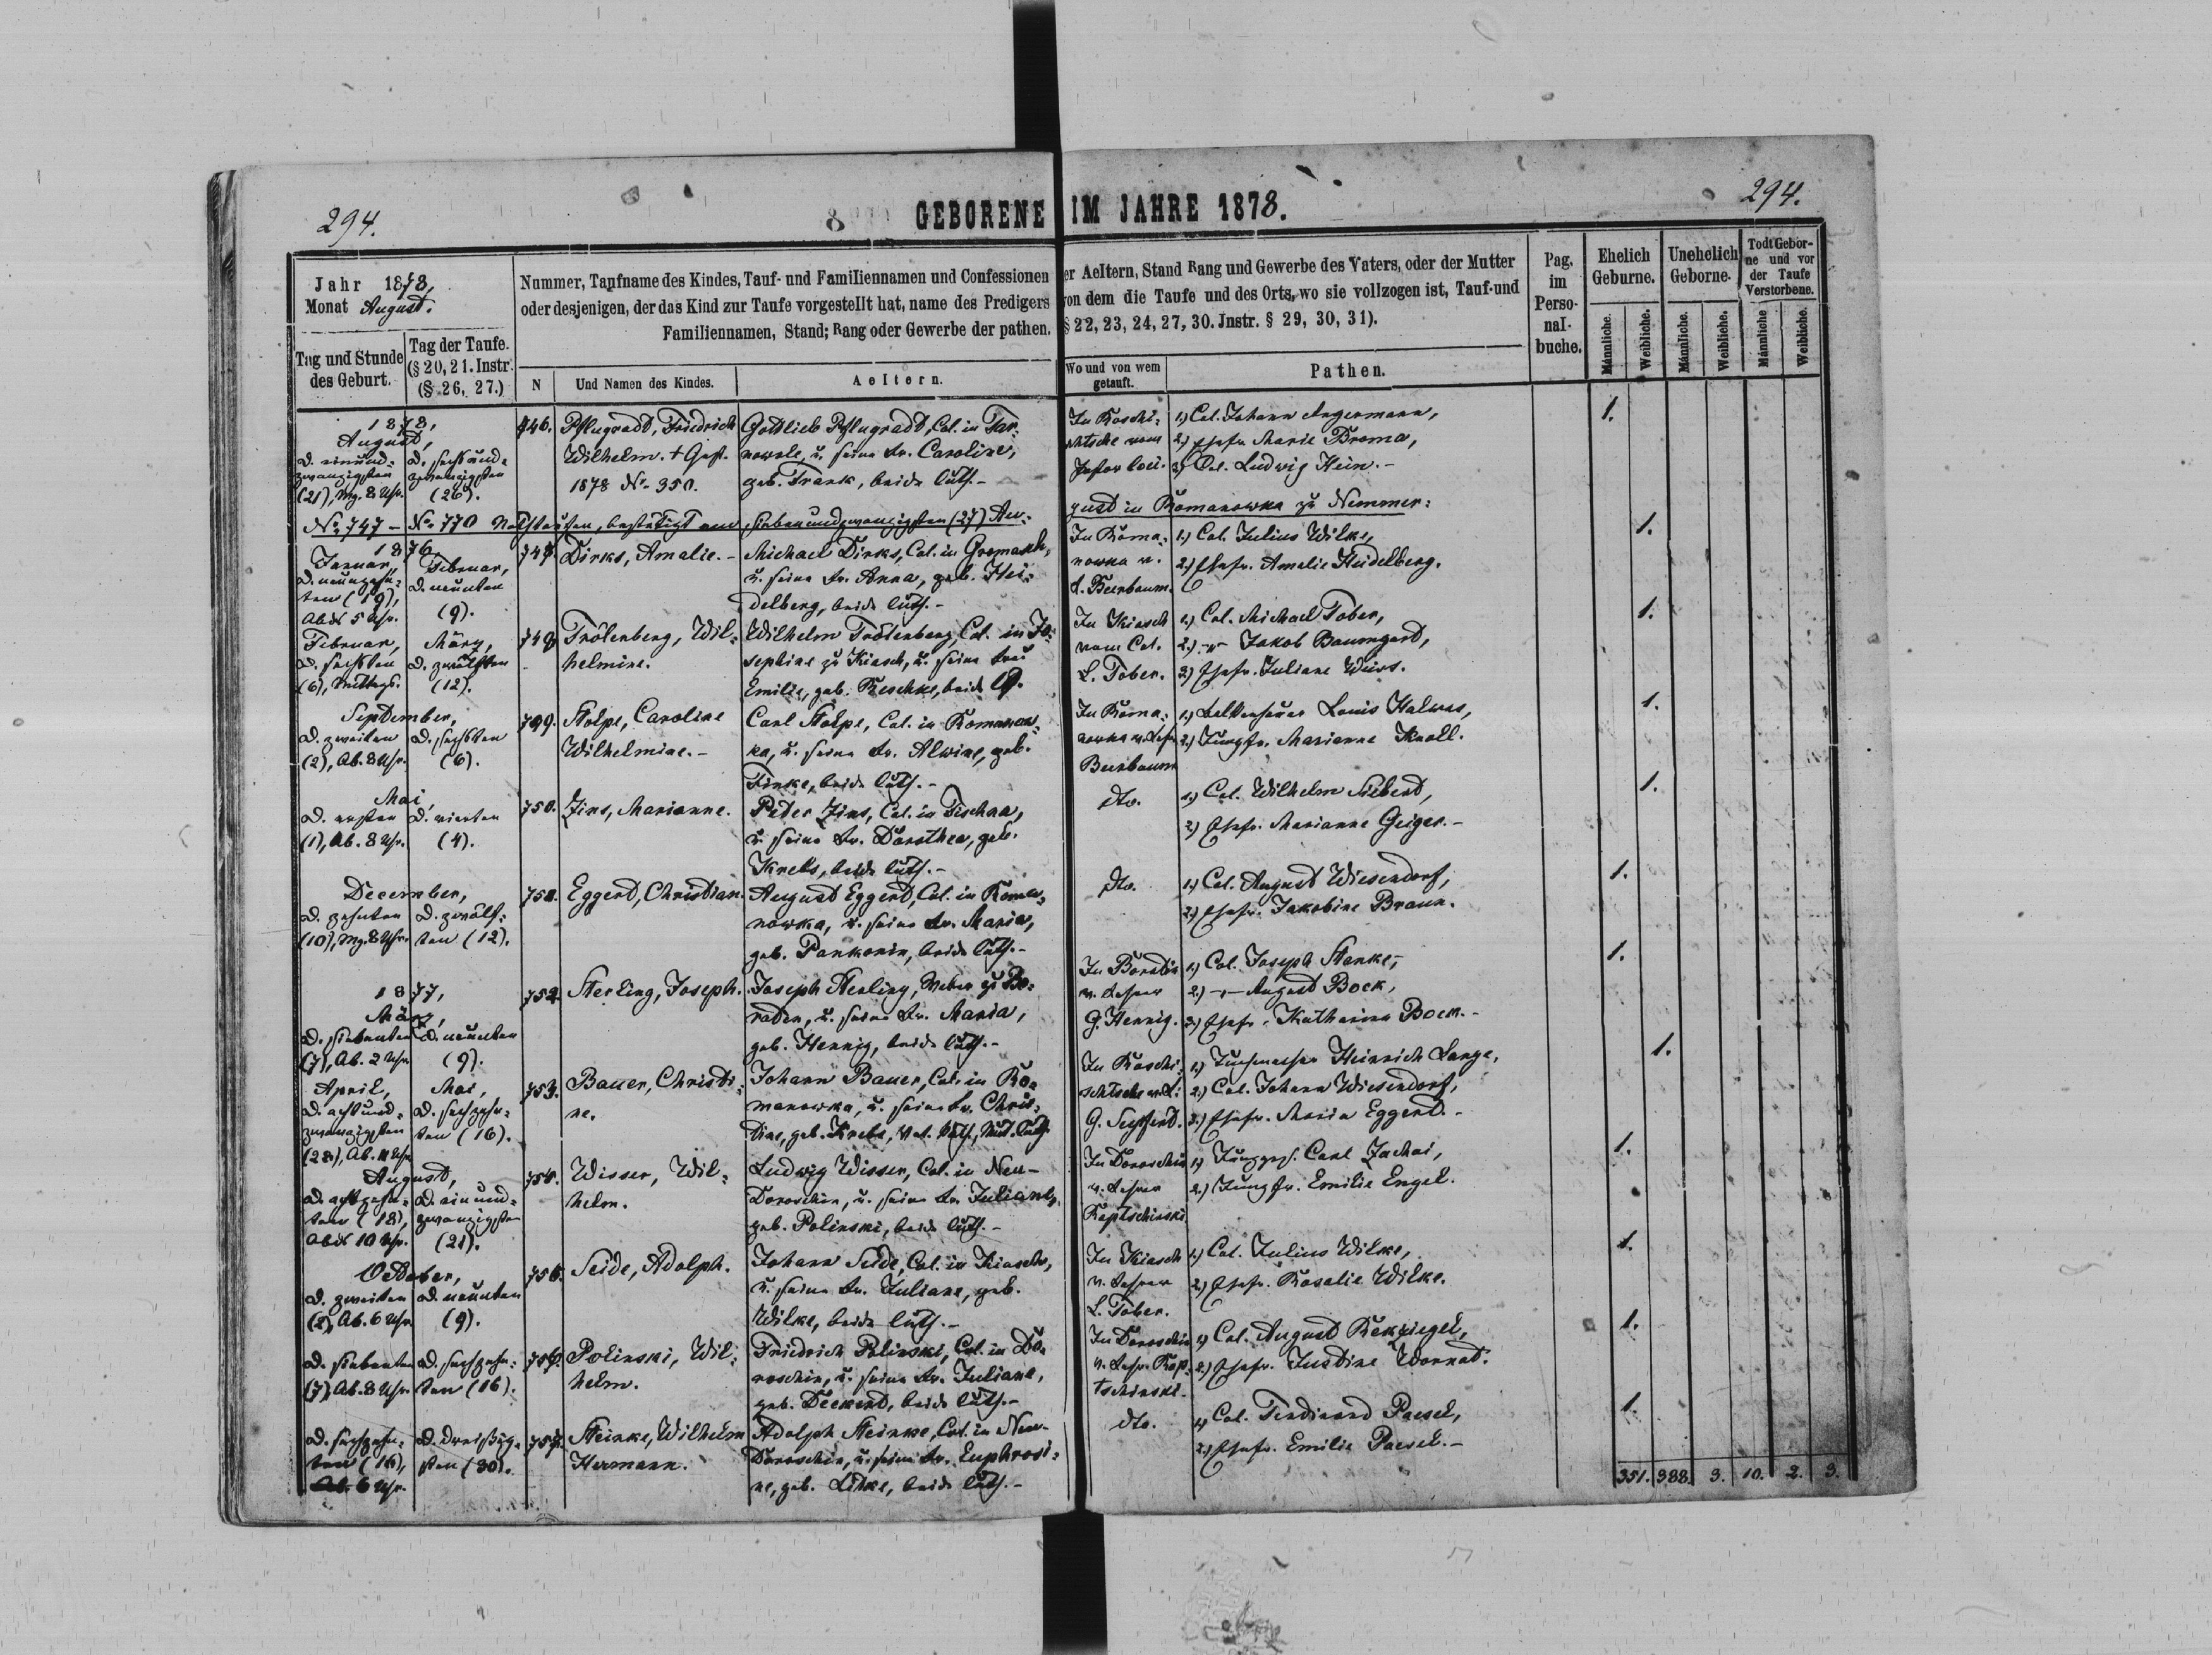 294.
294.
GEBORENE IM JAHRE 1878.
Jahr 1878,
Monat August.
Tag und Stunde
des Geburt.
Tag der Taufe.
(§ 20, 21. Instr.
(§ 26, 27.)
Nummer, Taufname des Kindes, Tauf- und Familiennamen und Confessionen
oder desjenigen, der das Kind zur Taufe vorgestellt hat, name des Predigers
Familiennamen, Stand; Rang oder Gewerbe der pathen.
N
Und Namen des Kindes.
Aeltern.
er Aeltern, Stand Rang und Gewerbe des Vaters, oder der Mutter
von dem die Taufe und des Orts, wo sie vollzogen ist, Tauf-und
§ 22, 23, 24, 27, 30. Jnstr. § 29, 30, 31).
Wo und von wem
getauft.
Pathen.
Pag.
im
Perso-
nal-
buche.
Ehelich
Geburne.
Unehelich
Geborne.
Todt Gebor-
ne und vor
der Taufe
Verstorbene.
Männliche.
Weibliche.
Männliche.
Weibliche.
Männliche
Weibliche.
1878,
August,
d. einund-
zwanzigsten
(21), Mg. 8 Uhr.
d. sechsund-
zwanzigsten
(26).
746.
Pflugradt, Friedrich
Wilhelm. + Gest.
1878 No. 350.
Gottlieb Pflugradt, Col. in Tar-
nowole, u. seine Fr. Caroline,
geb. Frank, beide luth.-
In Roschi-
schtsche vom
Pastor loci.
1.) Col. Johann Angermann,
2.) Ehefr. Marie Broma,
3.) Col. Ludwig Hein.-
1.
No. 747 - No. 770 Nothtaufen, bestätigt am siebenundzwanzigsten (27) Au-
gust in Romanowka zu Nemmer:
1876,
Januar,
d. neunzehn-
ten (19),
Abds 5 Uhr.
Februar,
d. neunten
(9).
747.
Dirks, Amalie.-
Michael Dirks, Col. in Gromasch,
u. seine Fr. Anna, geb. Hei-
delberg, beide luth.-
In Roma-
nowka v.
A. Beerbaum.
1.) Col. Julius Wilke,
2.) Ehefr. Amalie Heidelberg.
1.
Februar,
d. sechsten
(6), Mittags.
März,
d. zwölften
(12).
748.
Trölenberg, Wil-
helmine.
Wilhelm Trölenberg, Col. in Jo-
sephine zu Kiasch, u. seine Frau
Emilie, geb. Reschke, beide
In Kiasch
vom Cat.
L. Tober.
1.) Col. Michael Tober,
2.) -"- Jakob Baumgard,
3.) Ehefr. Juliane Weirs.
1.
September,
d. zweiten
(2), Ab. 8 Uhr.
d. sechsten
(6).
749.
Stolpe, Caroline
Wilhelmine.-
Carl Stolpe, Col. in Romanow-
ka, u. seine Fr. Alwine, geb.
Finke, beide luth.-
In Roma-
nowka v. Lehr.
Beerbaum
1.) Louis Halwas,
2.) Jungfr. Marianne Knoll.
1.
Mai,
d. ersten
(1), Ab. 8 Uhr.
d. vierten
(4).
750.
Zins, Marianne.
Peter Zins, Col. in Tischna,
u. seine Fr. Dorothea, geb.
Krebs, beide luth.-
dto.
1.) Col. Wilhelm Siebert,
2.) Ehefr. Marianne Geiger.-
1.
December,
d. zehnten
(10), Mg. 8 Uhr.
d. zwölf-
ten (12).
751.
Eggerd, Christian.
August Eggerd, Col. in Roma-
nowka, u. seine Fr. Maria,
geb. Pankonin, beide luth.-
dto.
1.) Col. August Wiesendorf,
2.) Ehefr. Jakobine Braun.
1.
1877,
März,
d. siebenten
(7), Ab. 2 Uhr
d. neunten
(9).
752.
Sterling, Joseph.
Joseph Sterling, Weber zu Bo-
ratin, u. seine Fr. Maria,
geb. Hennig, beide luth.-
In Boratin
v. Lehrer
G. Hennig.
1.) Col. Joseph Stenke,
2.) -"- August Bock,
3.) Ehefr. Katharina Bock.-
1.
April,
d. achtund-
zwanzigsten
(28), Ab. 11 Uhr
Mai,
d. sechzehn-
ten (16).
753.
Bauer, Christi-
ne.
Johann Bauer, Col. in Ro-
manowka, u. seine Fr. Chris-
tine, geb. Krebs, Vat. kath., Mut. luth.
In Roschi-
schtsche v. L.
G. Seyferd.
1.) Tuchmacher Heinrich Lange,
2.) Col. Johann Wiesendorf,
3.) Ehefr. Maria Eggerd.-
1.
August,
d. achtzehn-
ten (18),
Abds 10 Uhr.
d. einund-
zwanzigsten
(21).
754.
Wisser, Wil-
helm.
Ludwig Wisser, Col. in Neu-
Doroschin, u. seine Fr. Juliane,
geb. Polinski, beide luth.-
In Doroschin
v. Lehrer
Kaptschinski
1.) Junggs. Carl Zachai,
2.) Jungfr. Emilie Engel.
1.
October,
d. zweiten
(2), Ab. 6 Uhr
d. neunten
(9).
755.
Seide, Adolph.
Johann Seide, Col. in Kiasch,
u. seine Fr. Juliane, geb.
Wilke, beide luth.-
In Kiasch
v. Lehrer
L. Tober.
1.) Col. Julius Wilke,
2.) Ehefr. Rosalie Wilke.
1.
d. siebenten
(7), Ab. 8 Uhr
d. sechzehn-
ten (16).
756.
Polinski, Wil-
helm.
Friedrich Polinski, Col. in Do-
roschin, u. seine Fr. Juliane,
geb. Deckerd, beide luth.-
In Doroschin
v. Lehr. Kap-
tschinski.
1.) Col. August Rekziegel,
2.) Ehefr. Justine Wornat.
1.
d. sechzehn-
ten (16),
Ab. 6 Uhr.
d. dreißig-
sten (30).
757.
Steinke, Wilhelm
Hermann.
Adolph Steinke, Col. in Neu-
Doroschin, u. seine Fr. Euphrosi-
ne, geb. Litke, beide luth.-
dto.
1.) Col. Ferdinand Paesel,
2.) Ehefr. Emilie Paesel.-
1.
351. 388. 3. 10. 2. 3.